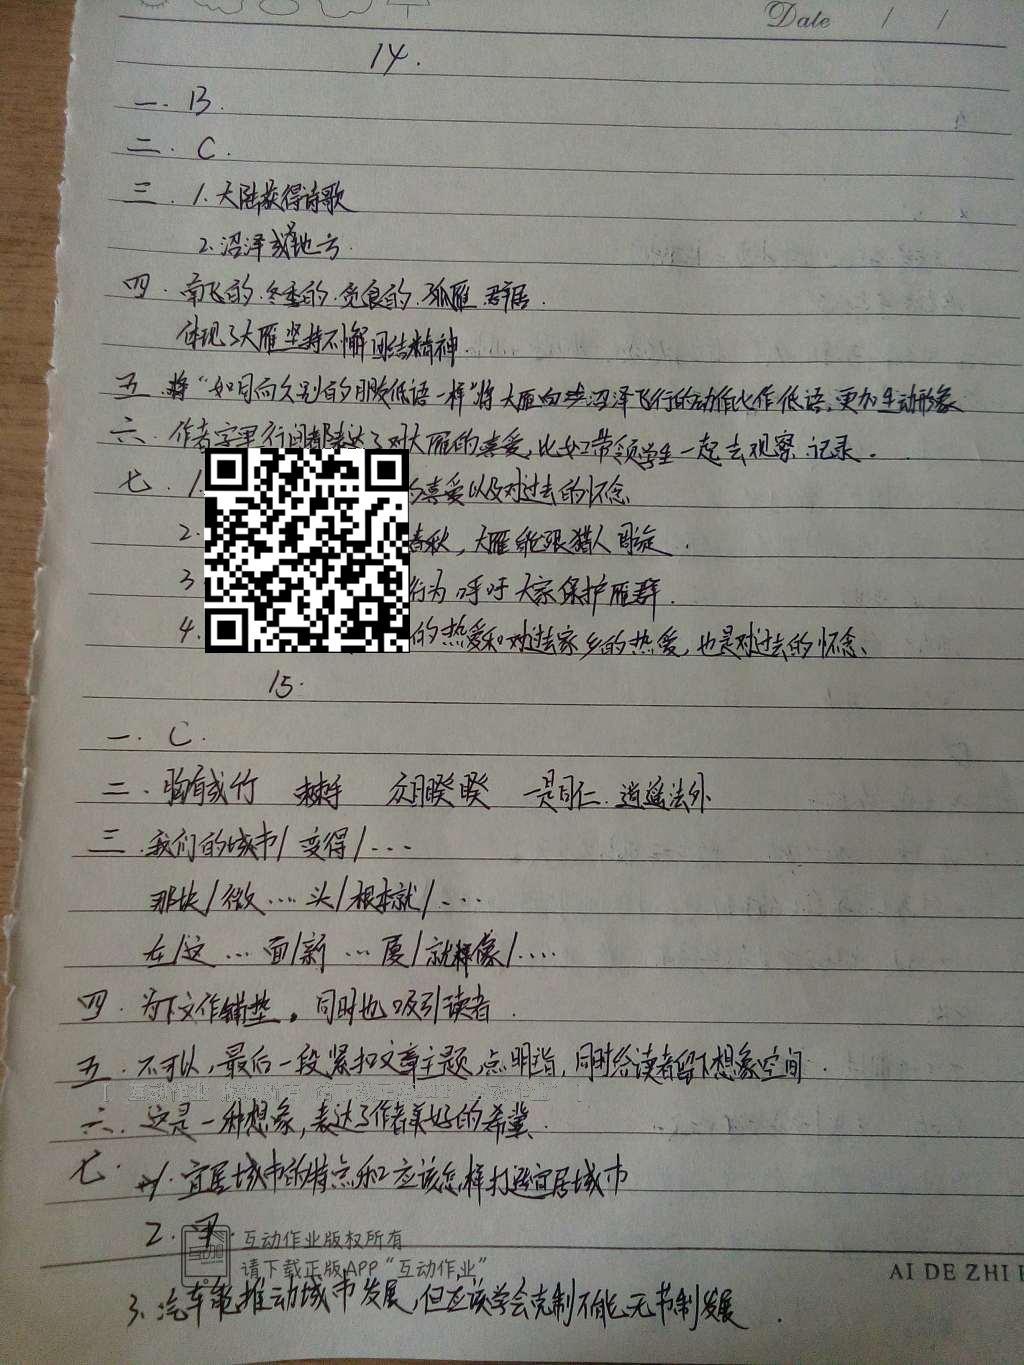 Date / /
14.
一. B.
二. C.
三. 1. 大陆获得诗歌
2. 沼泽或地方
四. 南飞的. 冬季的. 觅食的. 孤雁 群居.
体现了大雁坚持不懈团结精神.
五. 将“如同向久别的朋友低语一样”将大雁向沼泽飞行的动作比作低语, 更加生动形象
六. 作者字里行间都表达了对大雁的喜爱, 比如带领学生一起去观察 记录.
七. 1. 喜爱以及对过去的怀念
2. 春秋, 大雁能跟猎人周旋.
3 行为 呼吁大家保护雁群.
4. 的热爱和对过去家乡的热爱, 也是对过去的怀念、
15.
一. C.
二. 胸有成竹 棘手 众目睽睽 一视同仁. 逍遥法外
三. 我们的城市/ 变得/...
那块/微....头/根本就/....
在/这...面/新...厦/就像/....
四. 为下文作铺垫. 同时也吸引读者.
五. 不可以, 最后一段紧扣文章主题, 点明主旨, 同时给读者留下想象空间.
六. 这是一种想象, 表达了作者美好的希冀.
七. 1. 宜居城市的特点和应该怎样打造宜居城市
2.
互动作业版权所有
请下载正版APP“互动作业”
AI DE ZHI
3. 汽车能推动城市发展, 但应该学会克制不能无节制发展.